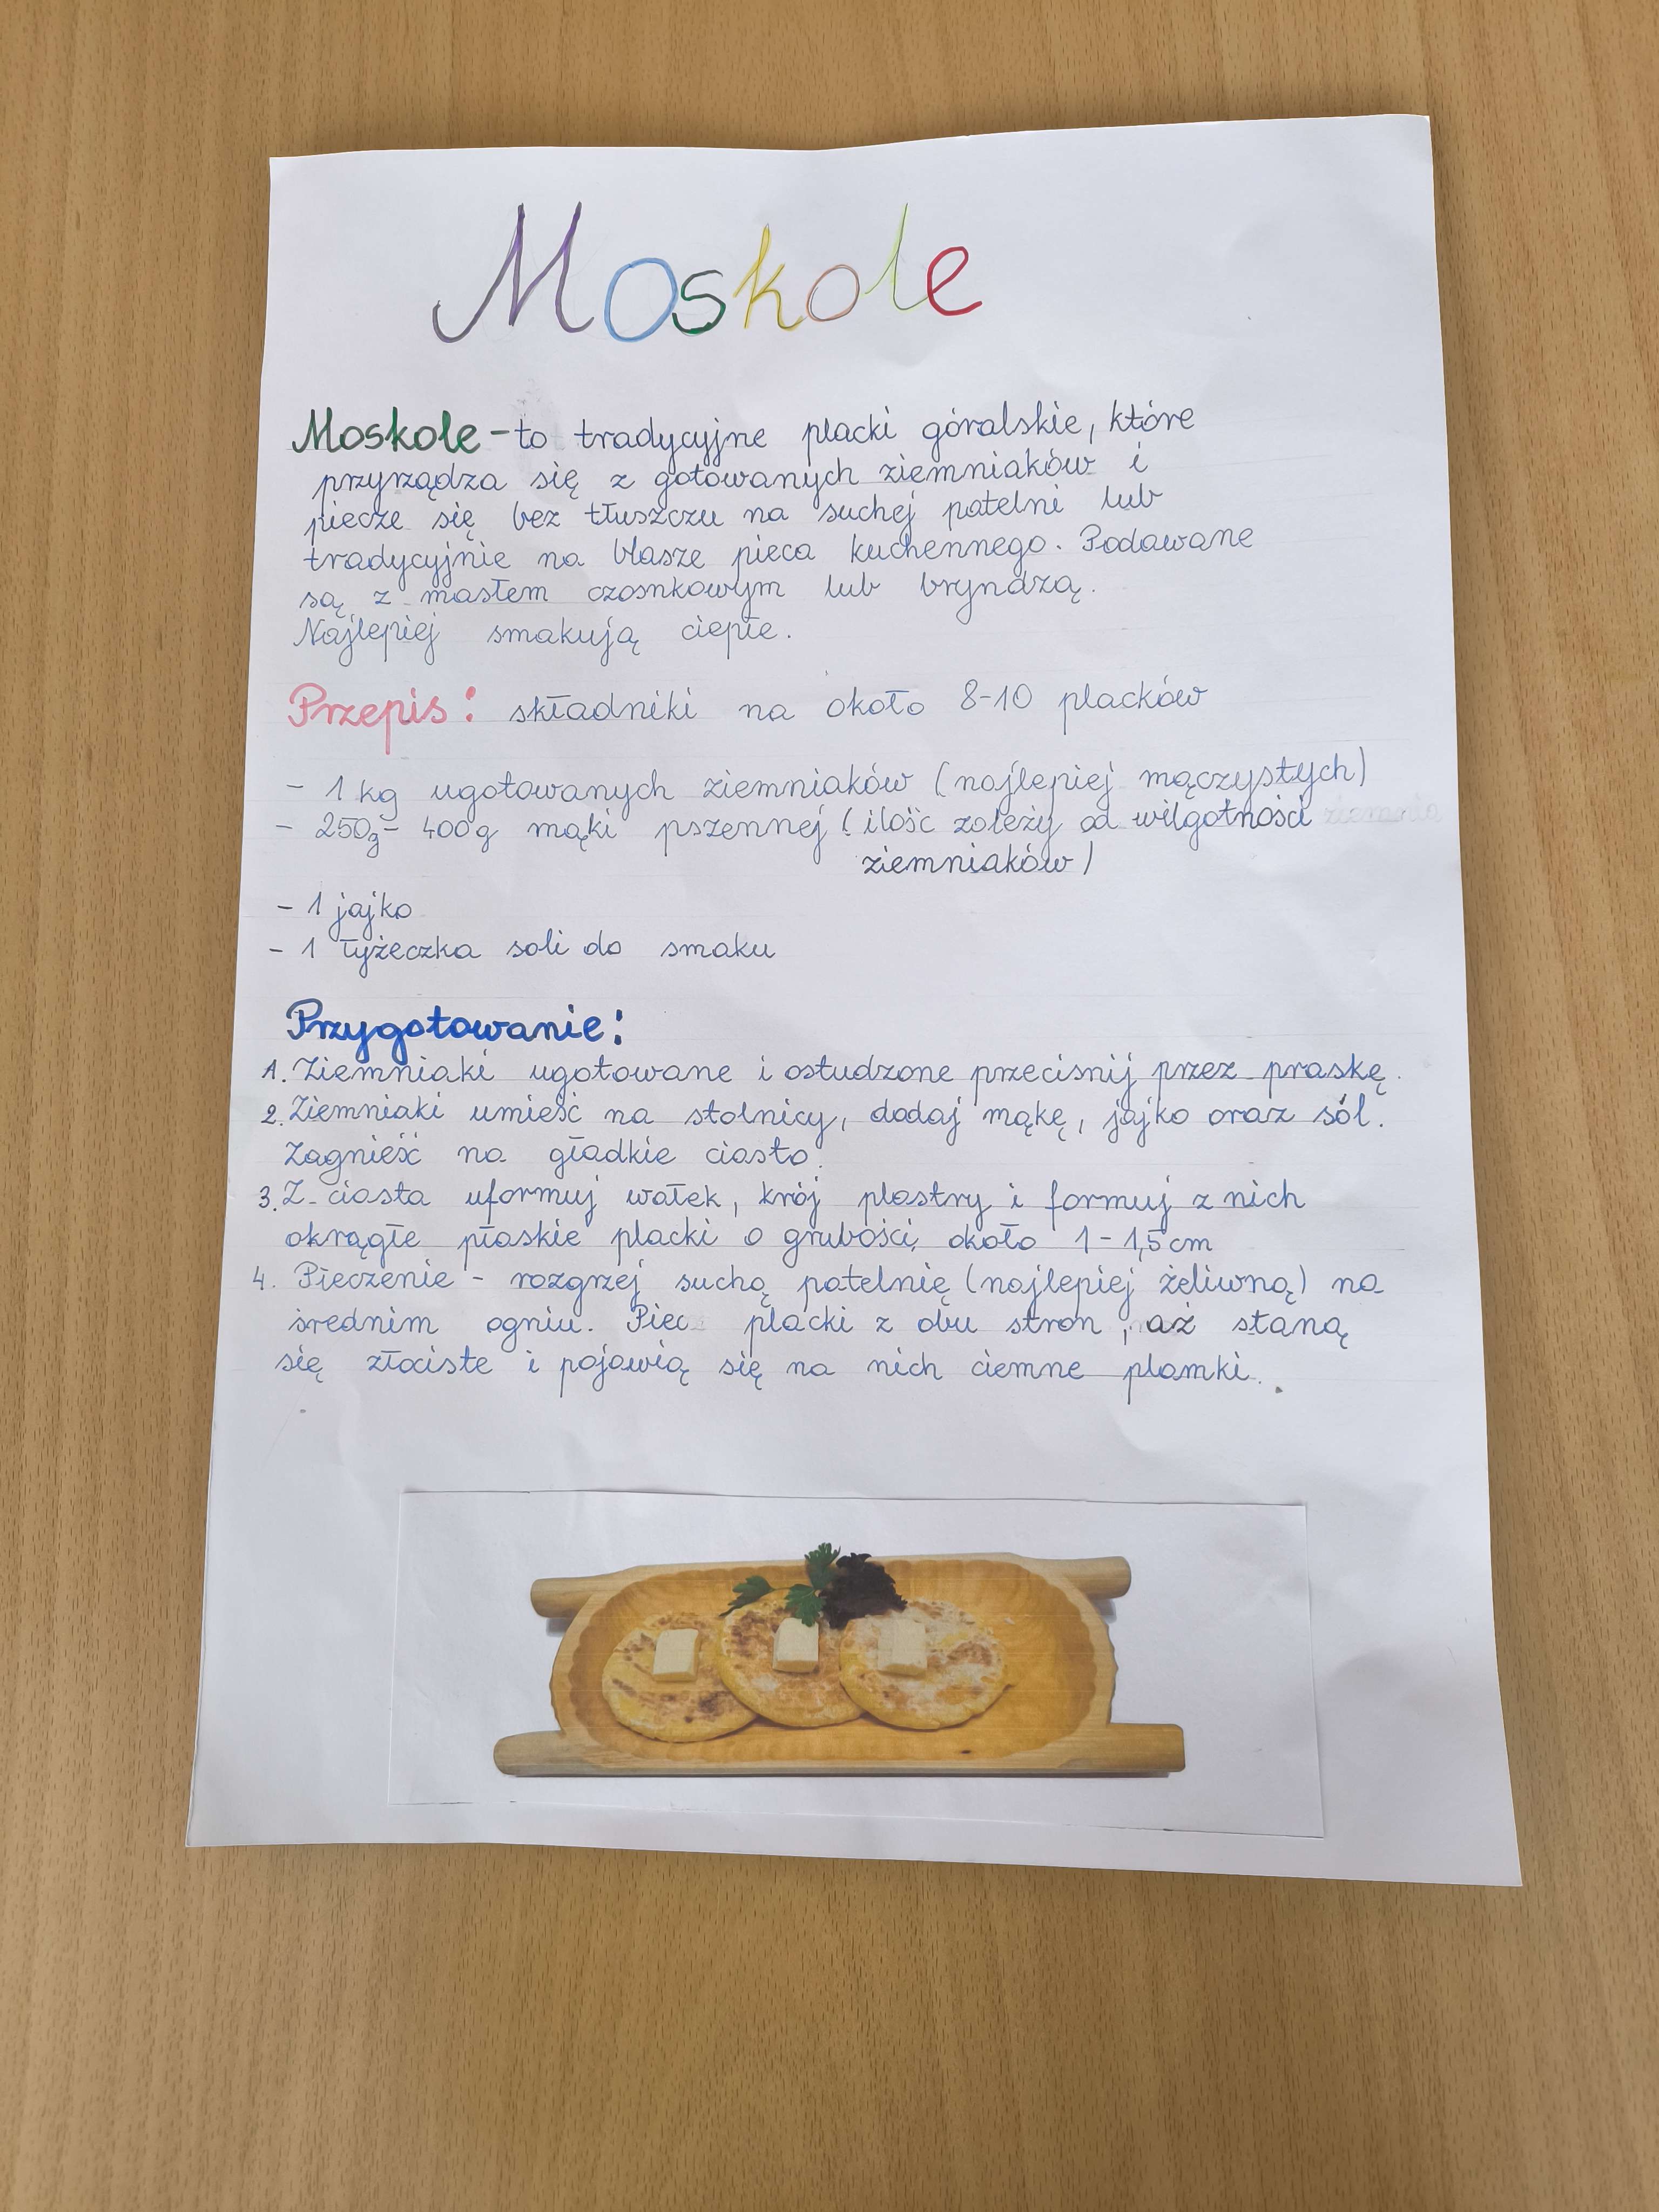 Moskole
Moskole - to tradycyjne placki góralskie, które
przyrządza się z gotowanych ziemniaków i
piecze się bez tłuszczu na suchej patelni lub
tradycyjnie na blasze pieca kuchennego. Podawane
są z masłem czosnkowym lub bryndzą.
Najlepiej smakują ciepłe.
Przepis: składniki na około 8-10 placków
- 1 kg ugotowanych ziemniaków (najlepiej mączystych)
- 250g - 400g mąki pszennej (ilość zależy od wilgotności
ziemniaków)
- 1 jajko
- 1 łyżeczka soli do smaku
Przygotowanie:
1. Ziemniaki ugotowane i ostudzone przecisnij przez praskę.
2. Ziemniaki umieść na stolnicy, dodaj mąkę, jajko oraz sól.
Zagnieść na gładkie ciasto.
3. Z ciasta uformuj wałek, krój plastry i formuj z nich
okrągłe płaskie placki o grubości około 1-1,5cm
4. Pieczenie - rozgrzej suchą patelnię (najlepiej żeliwną) na
średnim ogniu. Piec placki z obu stron, aż staną
się złociste i pojawią się na nich ciemne plamki.